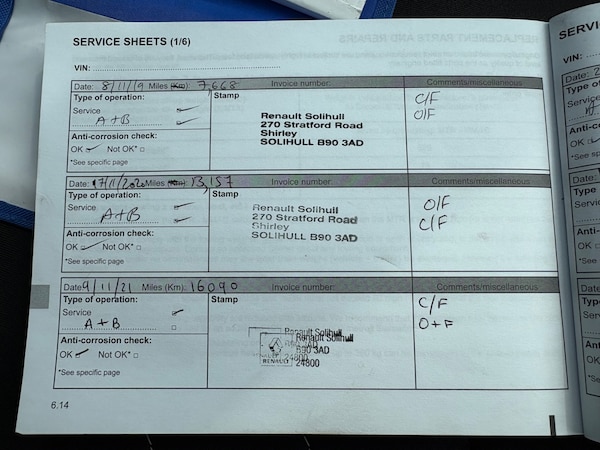 SERVICE SHEETS (1/6)
VIN:
Date: 8/11/19 Miles (Km): 7,668 Invoice number: Comments/miscellaneous
Type of operation: Stamp C/F
Service Renault Solihull O/F
A+B 270 Stratford Road
Shirley
Anti-corrosion check: SOLIHULL B90 3AD
OK Not OK*
*See specific page
Date: 17/11/2020 Miles (Km): 13,157 Invoice number: Comments/miscellaneous
Type of operation: Stamp O/F
Service Renault Solihull C/F
A+B 270 Stratford Road
Shirley
Anti-corrosion check: SOLIHULL B90 3AD
OK Not OK*
*See specific page
Date 9/11/21 Miles (Km): 16090 Invoice number: Comments/miscellaneous
Type of operation: Stamp C/F
Service O+F
A+B
Renault Solihull
Renault Solihull
Anti-corrosion check: B90 3AD
OK Not OK* RENAULT 24800
24800
*See specific page
6.14